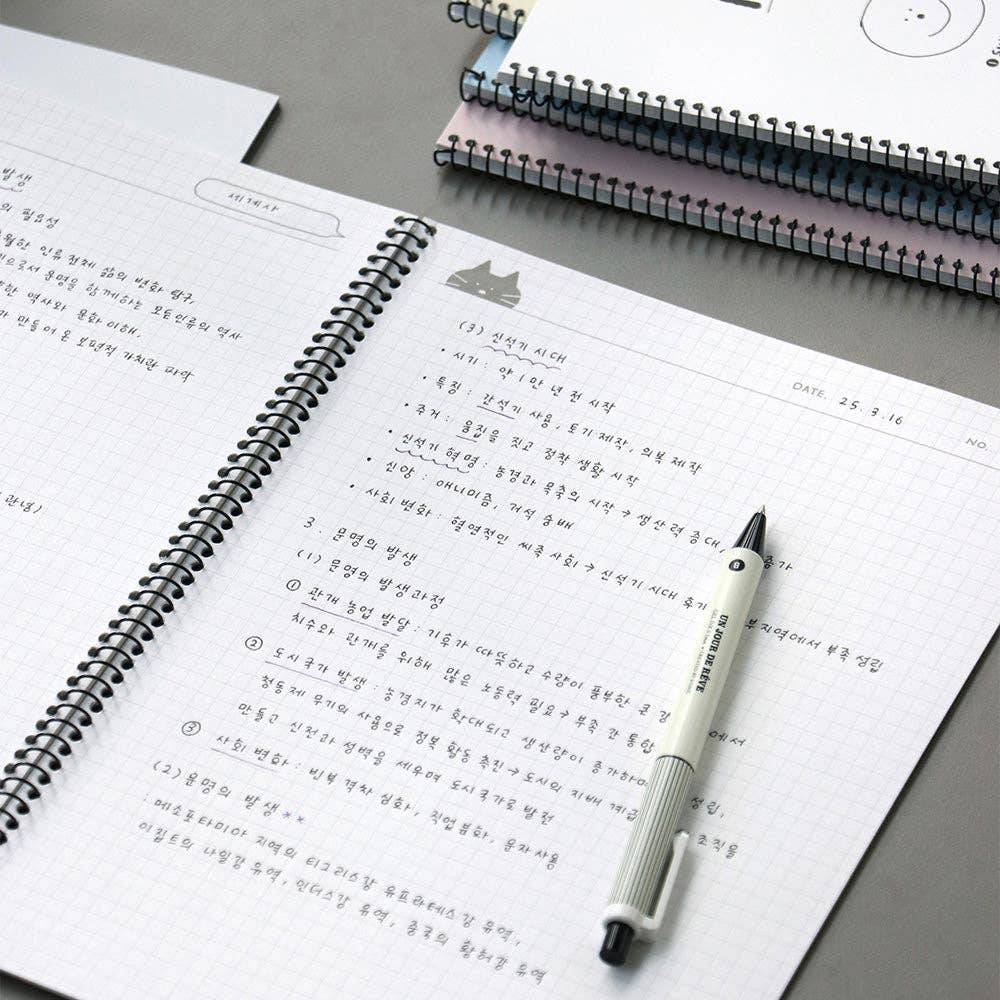 발생
세계사
의 필요성
월한 인류 전체 삶의 변화 탐구,
으로서 문명을 함께하는 모든 인류의 역사
한 역사와 문화 이해,
만들어 온 보편적 가치관 파악
관념)
DATE. 25. 3. 16
NO.
(3) 신석기 시대
• 시기 : 약 1만 년 전 시작
• 특징 : 간석기 사용, 토기 제작, 의복 제작
• 주거 : 움집을 짓고 정착 생활 시작
• 신석기 혁명 : 농경과 목축의 시작 → 생산력 증대, 증가
• 신앙 : 애니미즘, 거석 숭배
• 사회 변화 : 혈연적인 씨족 사회 → 신석기 시대 후기 부지역에서 부족 성립
3. 문명의 발생
(1) 문명의 발생과정
① 관개 농업 발달 : 기후가 따뜻하고 수량이 풍부한 큰 강 에서
치수와 관개를 위해 많은 노동력 필요 → 부족 간 통합
② 도시국가 발생 : 농경지가 확대되고 생산량이 증가하며 성립,
청동제 무기의 사용으로 정복 활동 촉진 → 도시의 지배 계급 조직을
만들고 신전과 성벽을 세우며 도시국가로 발전
③ 사회 변화 : 빈부 격차 심화, 직업 분화, 문자 사용
(2) 문명의 발생 **
: 메소포타미아 지역의 티그리스강 유프라테스강 유역,
이집트의 나일강 유역, 인더스강 유역, 중국의 황허강 유역
B
UN JOUR DE RÊVE